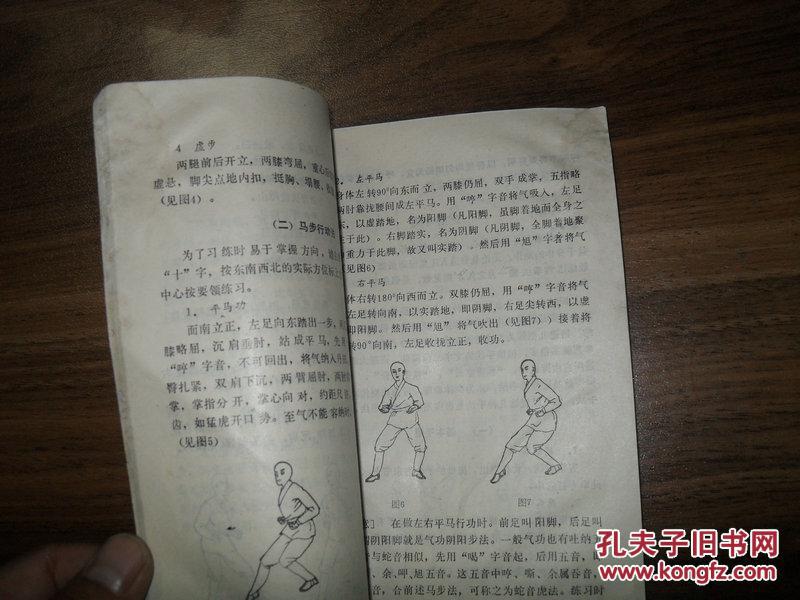 4 虚步
两腿前后开立，两膝弯屈，重心
虚悬，脚尖点地内扣，挺胸、塌腰，
（见图4）。
（二）马步行动法
为了习练时易于掌握方向，
“十”字，按东南西北的实际方位标
中心按要领练习。
1．平马功
面南立正，左足向东踏出一步，
膝略屈，沉肩垂肘，站成平马，先
“哼”字音，不可回出，将气纳入丹
臀扎紧，双肩下沉，两臂屈肘，两
掌，掌指分开，掌心向对，约距尺
齿，如猛虎开口势。至气不能容纳时，
（见图5）
2．左平马
身体左转90°向东而立，两膝仍屈，双手成掌，五指略
两肘靠拢腰间成左平马。用“哼”字音将气吸入，左足
东，以虚踏地，名为阳脚（凡阳脚，虽脚着地而全身之
在于此）。右脚踏实，名为阴脚（凡阴脚，全脚着地聚
重力于此脚，故又叫实踏）。然后用“旭”字者将气
见图6）
右平马
体右转180°向西而立。双膝仍屈，用“哼”字音将气
左足转向南，以实踏地，即阴脚，右足尖转西，以虚
即阳脚。然后用“旭”将气吹出（见图7））接着将
转90°向南，左足收拢立正，收功。
图6 图7
］ 在做左右平马行功时。前足叫阳脚，后足叫
阴阳脚就是气功阴阳步法。一般气功也有吐纳
音与蛇音相似，先用“喝”字音起，后用五音，
、余、呷、旭五音。这五音中哼、嘶、余属吞音，
音，合前述马步法，可称之为蛇音虎法。练习时
孔夫子旧书网
www.kongfz.com